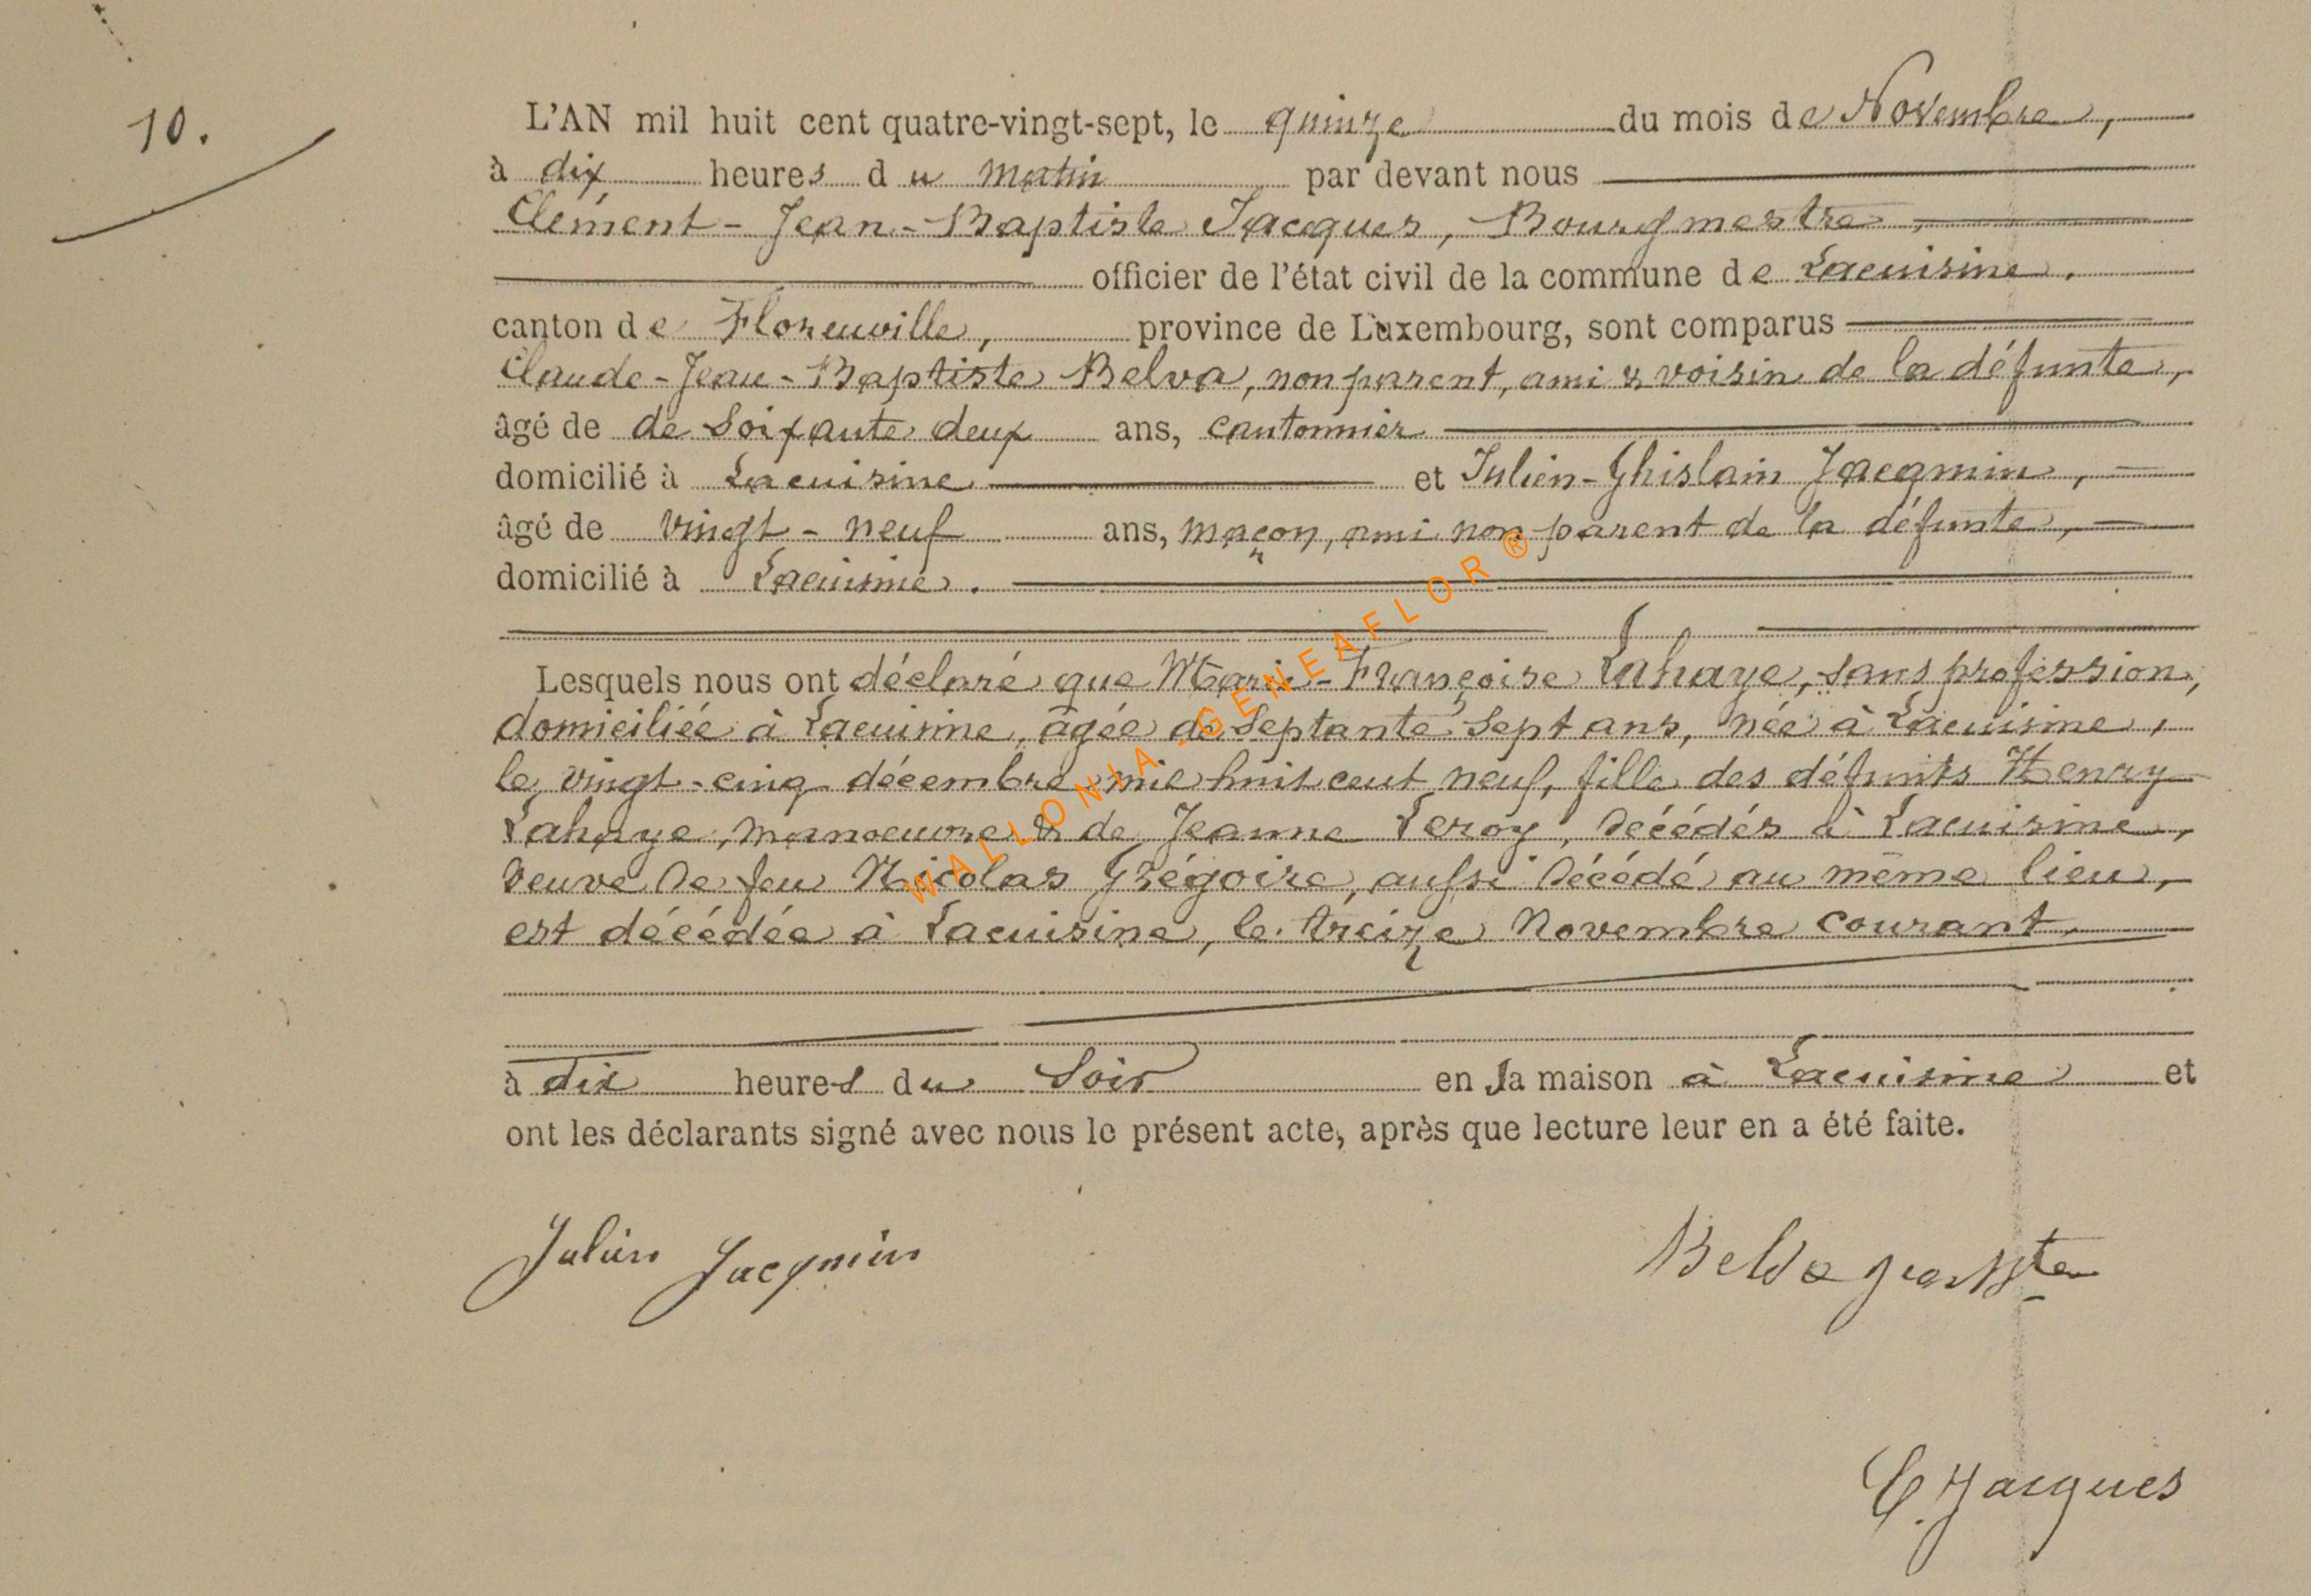 10.
L'AN mil huit cent quatre-vingt-sept, le quinze du mois de Novembre,
à dix heures du matin par devant nous
Clément-Jean-Baptiste Jacques, Bourgmestre,
officier de l'état civil de la commune de Lacuisine.
canton de Florenville, province de Luxembourg, sont comparus
Claude-Jean-Baptiste Belva, non parent, ami & voisin de la défunte,
âgé de de Soixante deux ans, cantonnier
domicilié à Lacuisine et Julien-Ghislain Jacqmin,
âgé de vingt-neuf ans, maçon, ami non parent de la défunte,
domicilié à Lacuisine.
Lesquels nous ont déclaré que Marie-Françoise Lahaye, sans profession,
domiciliée à Lacuisine, âgée de Septante Sept ans, née à Lacuisine,
le vingt-cinq décembre mil huit cent neuf, fille des défunts Henry
Lahaye, manoeuvre & de Jeanne Leroy, décédés à Lacuisine,
veuve de feu Nicolas Grégoire, aussi décédé au même lieu,
est décédée à Lacuisine, le treize Novembre courant.
à dix heures du Soir en sa maison à Lacuisine et
ont les déclarants signé avec nous le présent acte, après que lecture leur en a été faite.
Julien Jacqmin
Belva
C. Jacques
WALLONIA-GENEAFLOR®